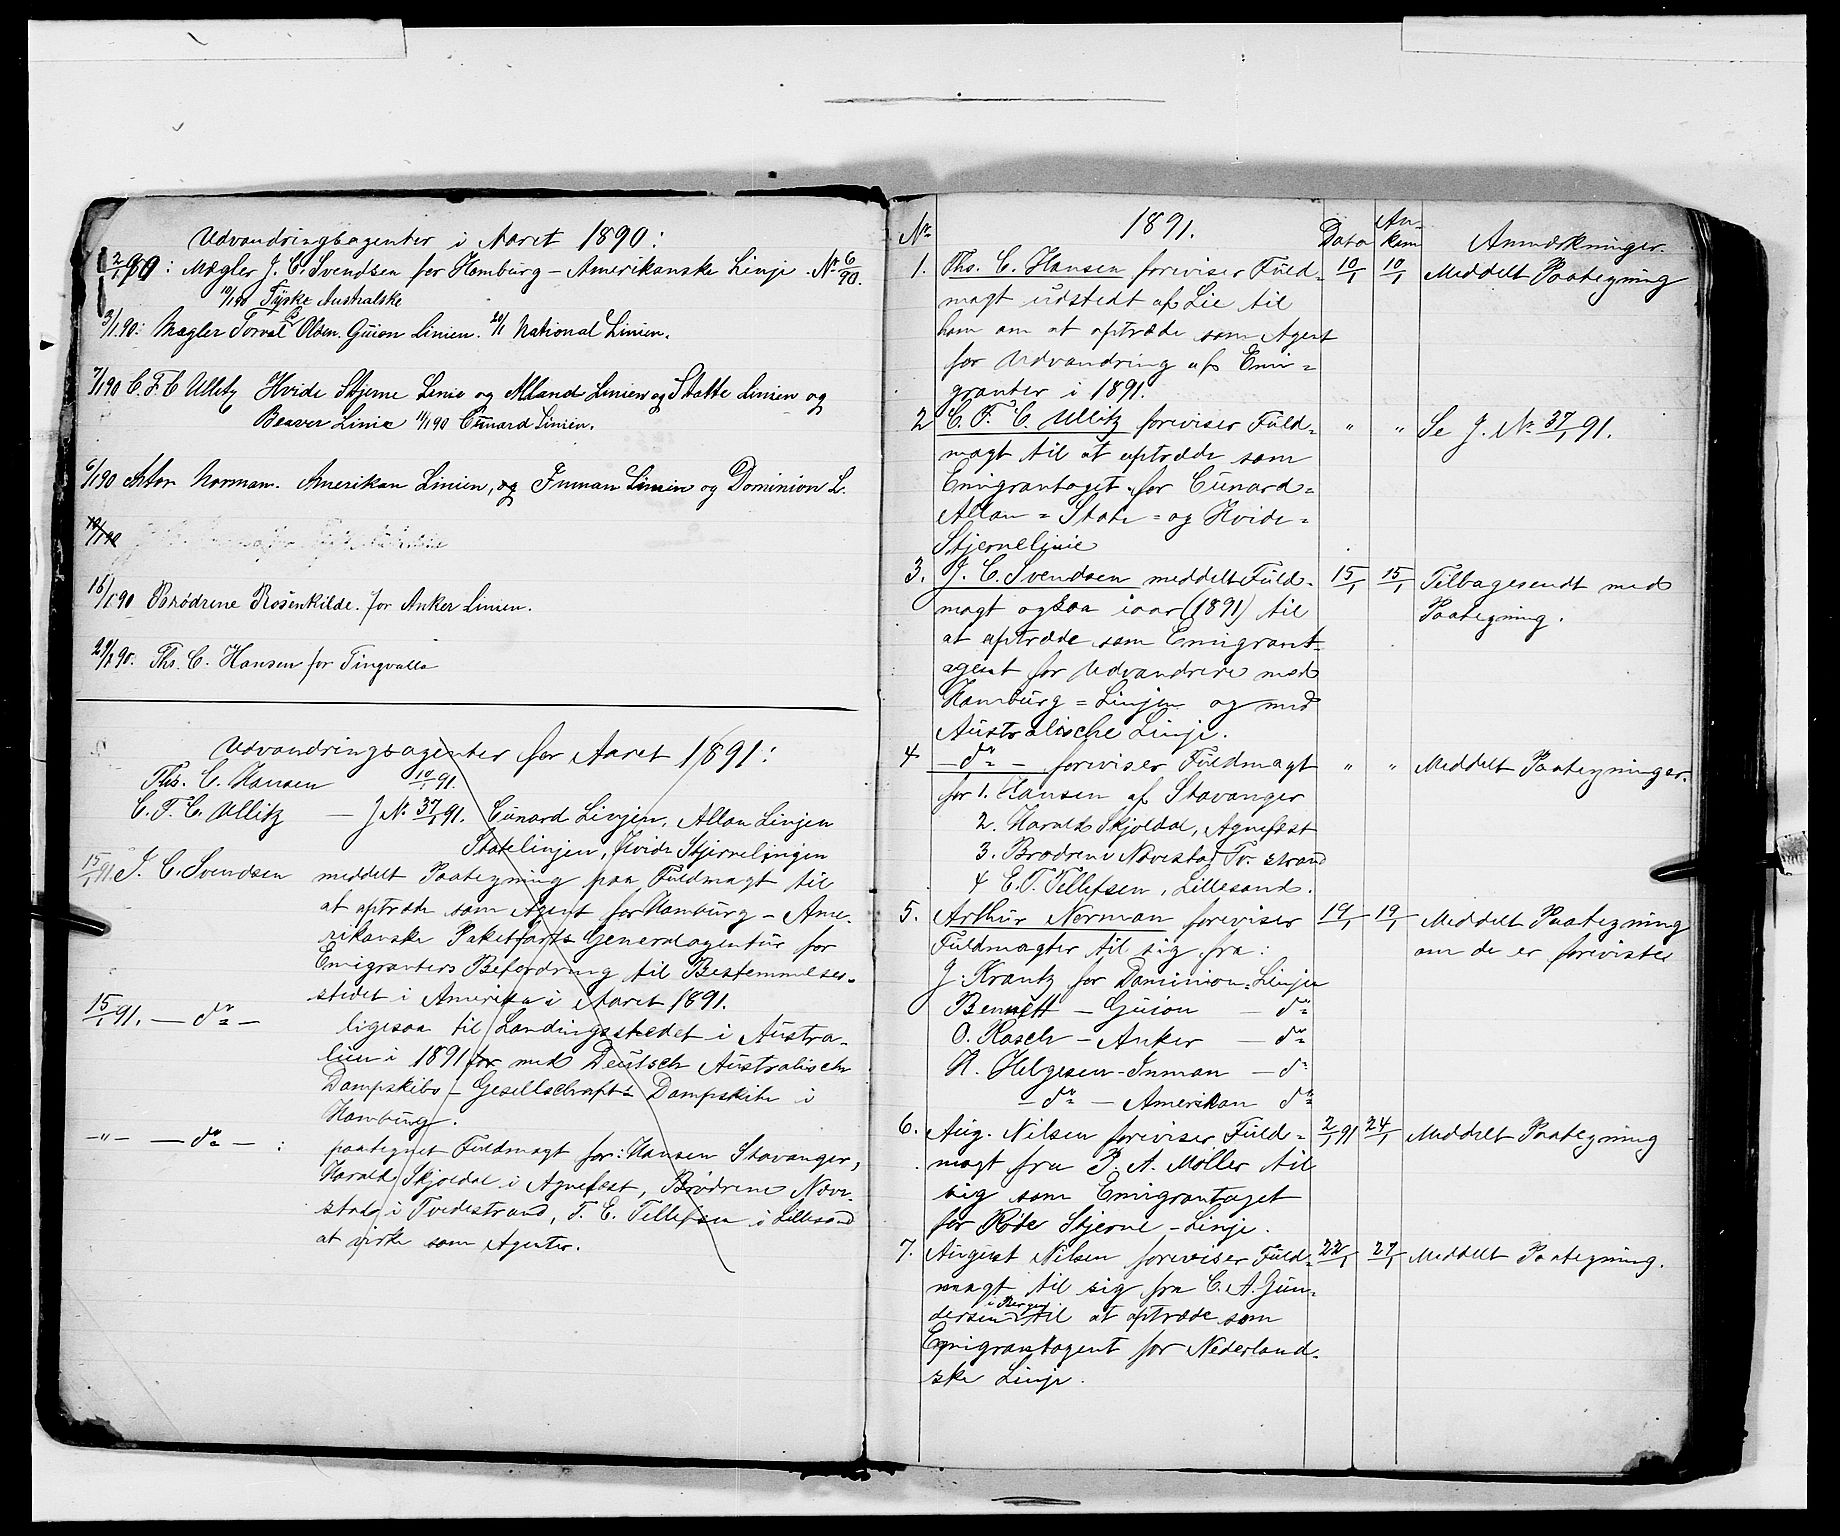 Udvandringsagenter i Aaret 1890:
2/1 90: Mægler J. C. Svendsen for Hamburg-Amerikanske Linje. No 6/90.
10/1 90 Tyske Australske
3/1 90: Mægler Torval Olsen. Guion Linien. 20/1 National Linien.
7/1 90 C. F. C Ullitz Hvide Stjerne Linie og Alland Linien og Statte Linien og
Beaver Linie 11/1 90 Cunard Linien.
6/1 90 Norman. Amerikan Linien, og Inman Linien og Dominion L.
10/1 90
15/1 90 Brødrene Rosenkilde. for Anker Linien.
29/1 90. Ths. C. Hansen for Tingvalla
Udvandringsagenter for Aaret 1891:
Ths. C. Hansen 10/1 91.
C. F. C. Ullitz — J No 37/1 91. Cunard Linjen, Allan Linjen
Statelinjen, Hvide Stjernelinjen
15/1 91. J. C. Svendsen meddelt Paategning paa Fuldmagt til
at optræde som Agent for Hamburg - Ame-
rikanske Paketfarts Generalagentur for
Emigranters Befordring til Bestemmelses-
stedet i Amerika i Aaret 1891.
15/1 91. — do — ligesaa til Landingsstedet i Austra-
lien i 1891 for med Deutsch Australisch
Dampskibs - Gesellschraft's Dampskibe i
Hamburg.
—"— — do — : paategnet Fuldmagt for: Hansen Stavanger,
Harald Skjoldal i Agnefest, Brødrene Næve-
stad i Tvedestrand, T. E. Tellefsen i Lillesand
at virke som Agenter.
No 1891. Dato An-
kom Anmærkninger.
1. Ths. C. Hansen foreviser Fuld- 10/1 10/1 Meddelt Paategning
magt udstedt af Lie til
ham om at optræde som Agent
for Udvandring af Emi-
granter i 1891.
2 C. F. C. Ullitz foreviser Fuld- " " Se J. No 37/1 91.
magt til at optræde som
Emigrantaget for Cunard-
Allan = State = og Hvide-
Stjernelinie
3. J. C. Svendsen meddelt Fuld- 15/1 15/1 Tilbagesendt med
magt ogsaa iaar (1891) til Paategning.
at optræde som Emigrant-
agent for Udvandrere med
Hamburg = Linjen og med
Australische Linje.
4 — do — foreviser Fuldmagt " " Meddelt Paategninger.
for 1. Hansen af Stavanger
2. Harald Skjoldal, Agnefest
3. Brødrene Nævestad Tv. strand
4 E. T. Tellefsen, Lillesand.
5. Arthur Norman foreviser 19/1 19/1 Meddelt Paategning
Fuldmagter til sig fra: om de er foreviste
J. Krantz for Dominion-Linjen
Bennett — Guion — do
O. Kasch - Anker — do
R. Helgesen - Inman — do
— do — Amerikan do
6. Aug. Nilsen foreviser Fuld- 2/1 91 24/1 Meddelt Paategning
magt fra P. A. Møller til
sig som Emigrantaget
for Røde Stjerne - Linje.
7. August Nilsen foreviser Fuld- 22/1 27/1 Meddelt Paategning.
magt til sig fra C. A. Gun-
dersen i Bergen til at optræde som
Emigrantagent for Nederland-
ske Linje.